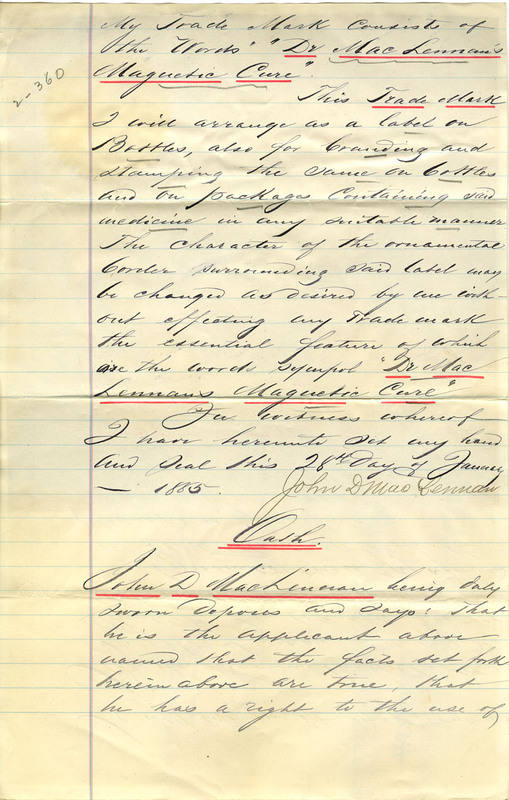 My Trade Mark consists of
the Words "Dr Mac Lennan's
Magnetic Cure".
2-360
This Trade Mark
I will arrange as a label on
Bottles, also for branding and
stamping the same on bottles
and on packages Containing said
medicine in any suitable manner
The character of the ornamental
border surrounding said label may
be changed as desired by me with-
out effecting my Trade mark
the essential feature of which
are the words symbol "Dr Mac
Lennans Magnetic Cure"
In witness whereof
I have hereunto set my hand
and seal this 28th Day of January
— 1885. John D Mac Lennan
Oath.
John D MacLennan being duly
sworn deposes and says: that
he is the applicant above
named that the facts set forth
herein above are true, that
he has a right to the use of